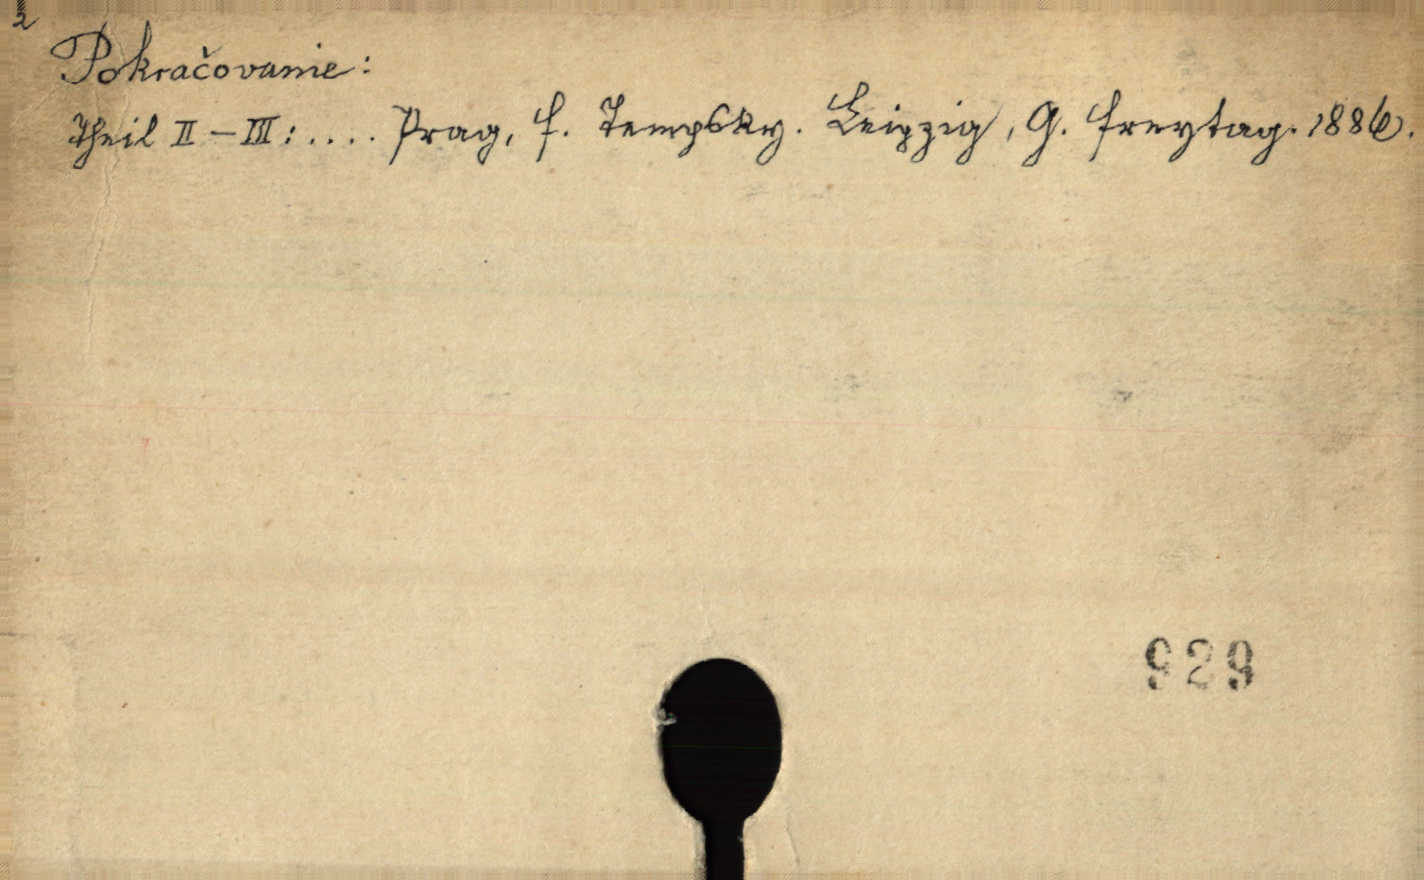 2
Pokračovanie:
Theil II – III: .... Prag, F. Tempsky. Leipzig, G. Freytag. 1886.
929